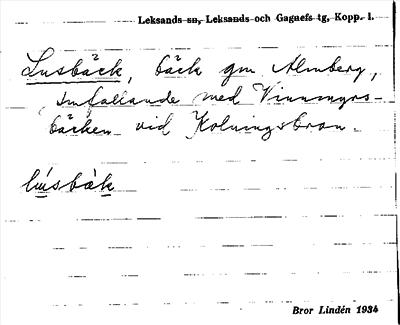 Leksands sn, Leksands och Gagnefs tg, Kopp. l.
Lusbäck, bäck gm Almberg,
smfallande med Vinnmyrs-
bäcken vid Kolningsbron.
lúsbàk
Bror Lindén 1934